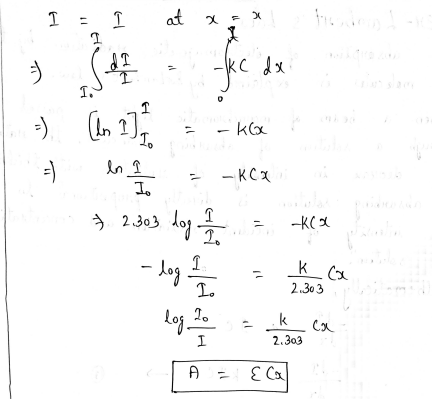 I = I at x = x
⇒ ∫_{I₀}^{I} dI/I = -∫_{0}^{x} KC dx
⇒ [ln I]_{I₀}^{I} = - KCx
⇒ ln I/I₀ = - KCx
⇒ 2.303 log I/I₀ = -KCx
- log I/I₀ = K/2.303 Cx
log I₀/I = k/2.303 Cx
A = ƐCx